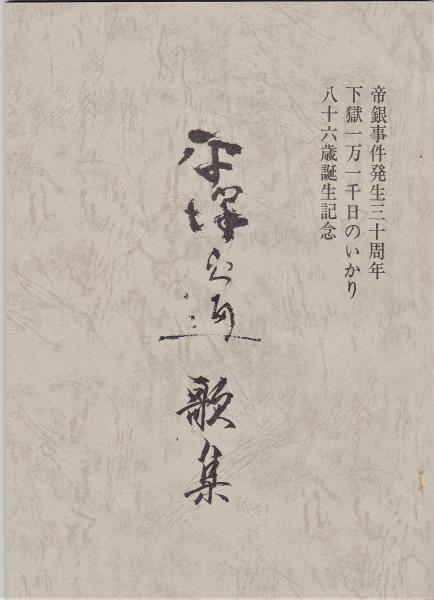 帝銀事件発生三十周年
下獄一万一千日のいかり
八十六歳誕生記念
平澤貞通 歌集